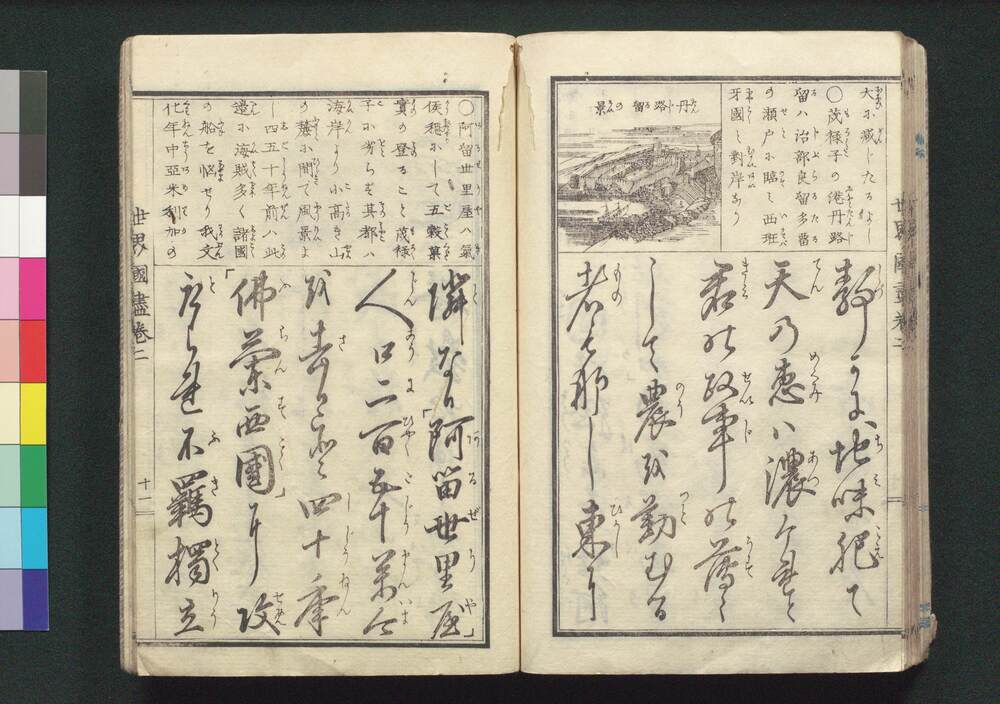 世界國盡巻二
大に減じたるよし
○茂禄子の港丹路
留ハ治部良留多留
の瀬戸に臨て西班
牙國と對岸あり
丹路留の景
静かに地味肥て
天の恵ハ濃けれど
君の政事の薄く
して農を勤むる
者も那し東に
○阿留世里屋ハ氣
候穏にして五穀菓
實の登ること茂禄
子に劣らず其都ハ
海岸より小高き山
の麓に開て風景よ
し四五十年前ハ此
邉に海賊多く諸國
の船を悩せり我文
化年中亜米利加の
隣なり「阿留世里屋」
人口二百五十萬今
を去ること四十年
「佛蘭西國」に攻
取られ不羈獨立
世界國盡巻二
十一